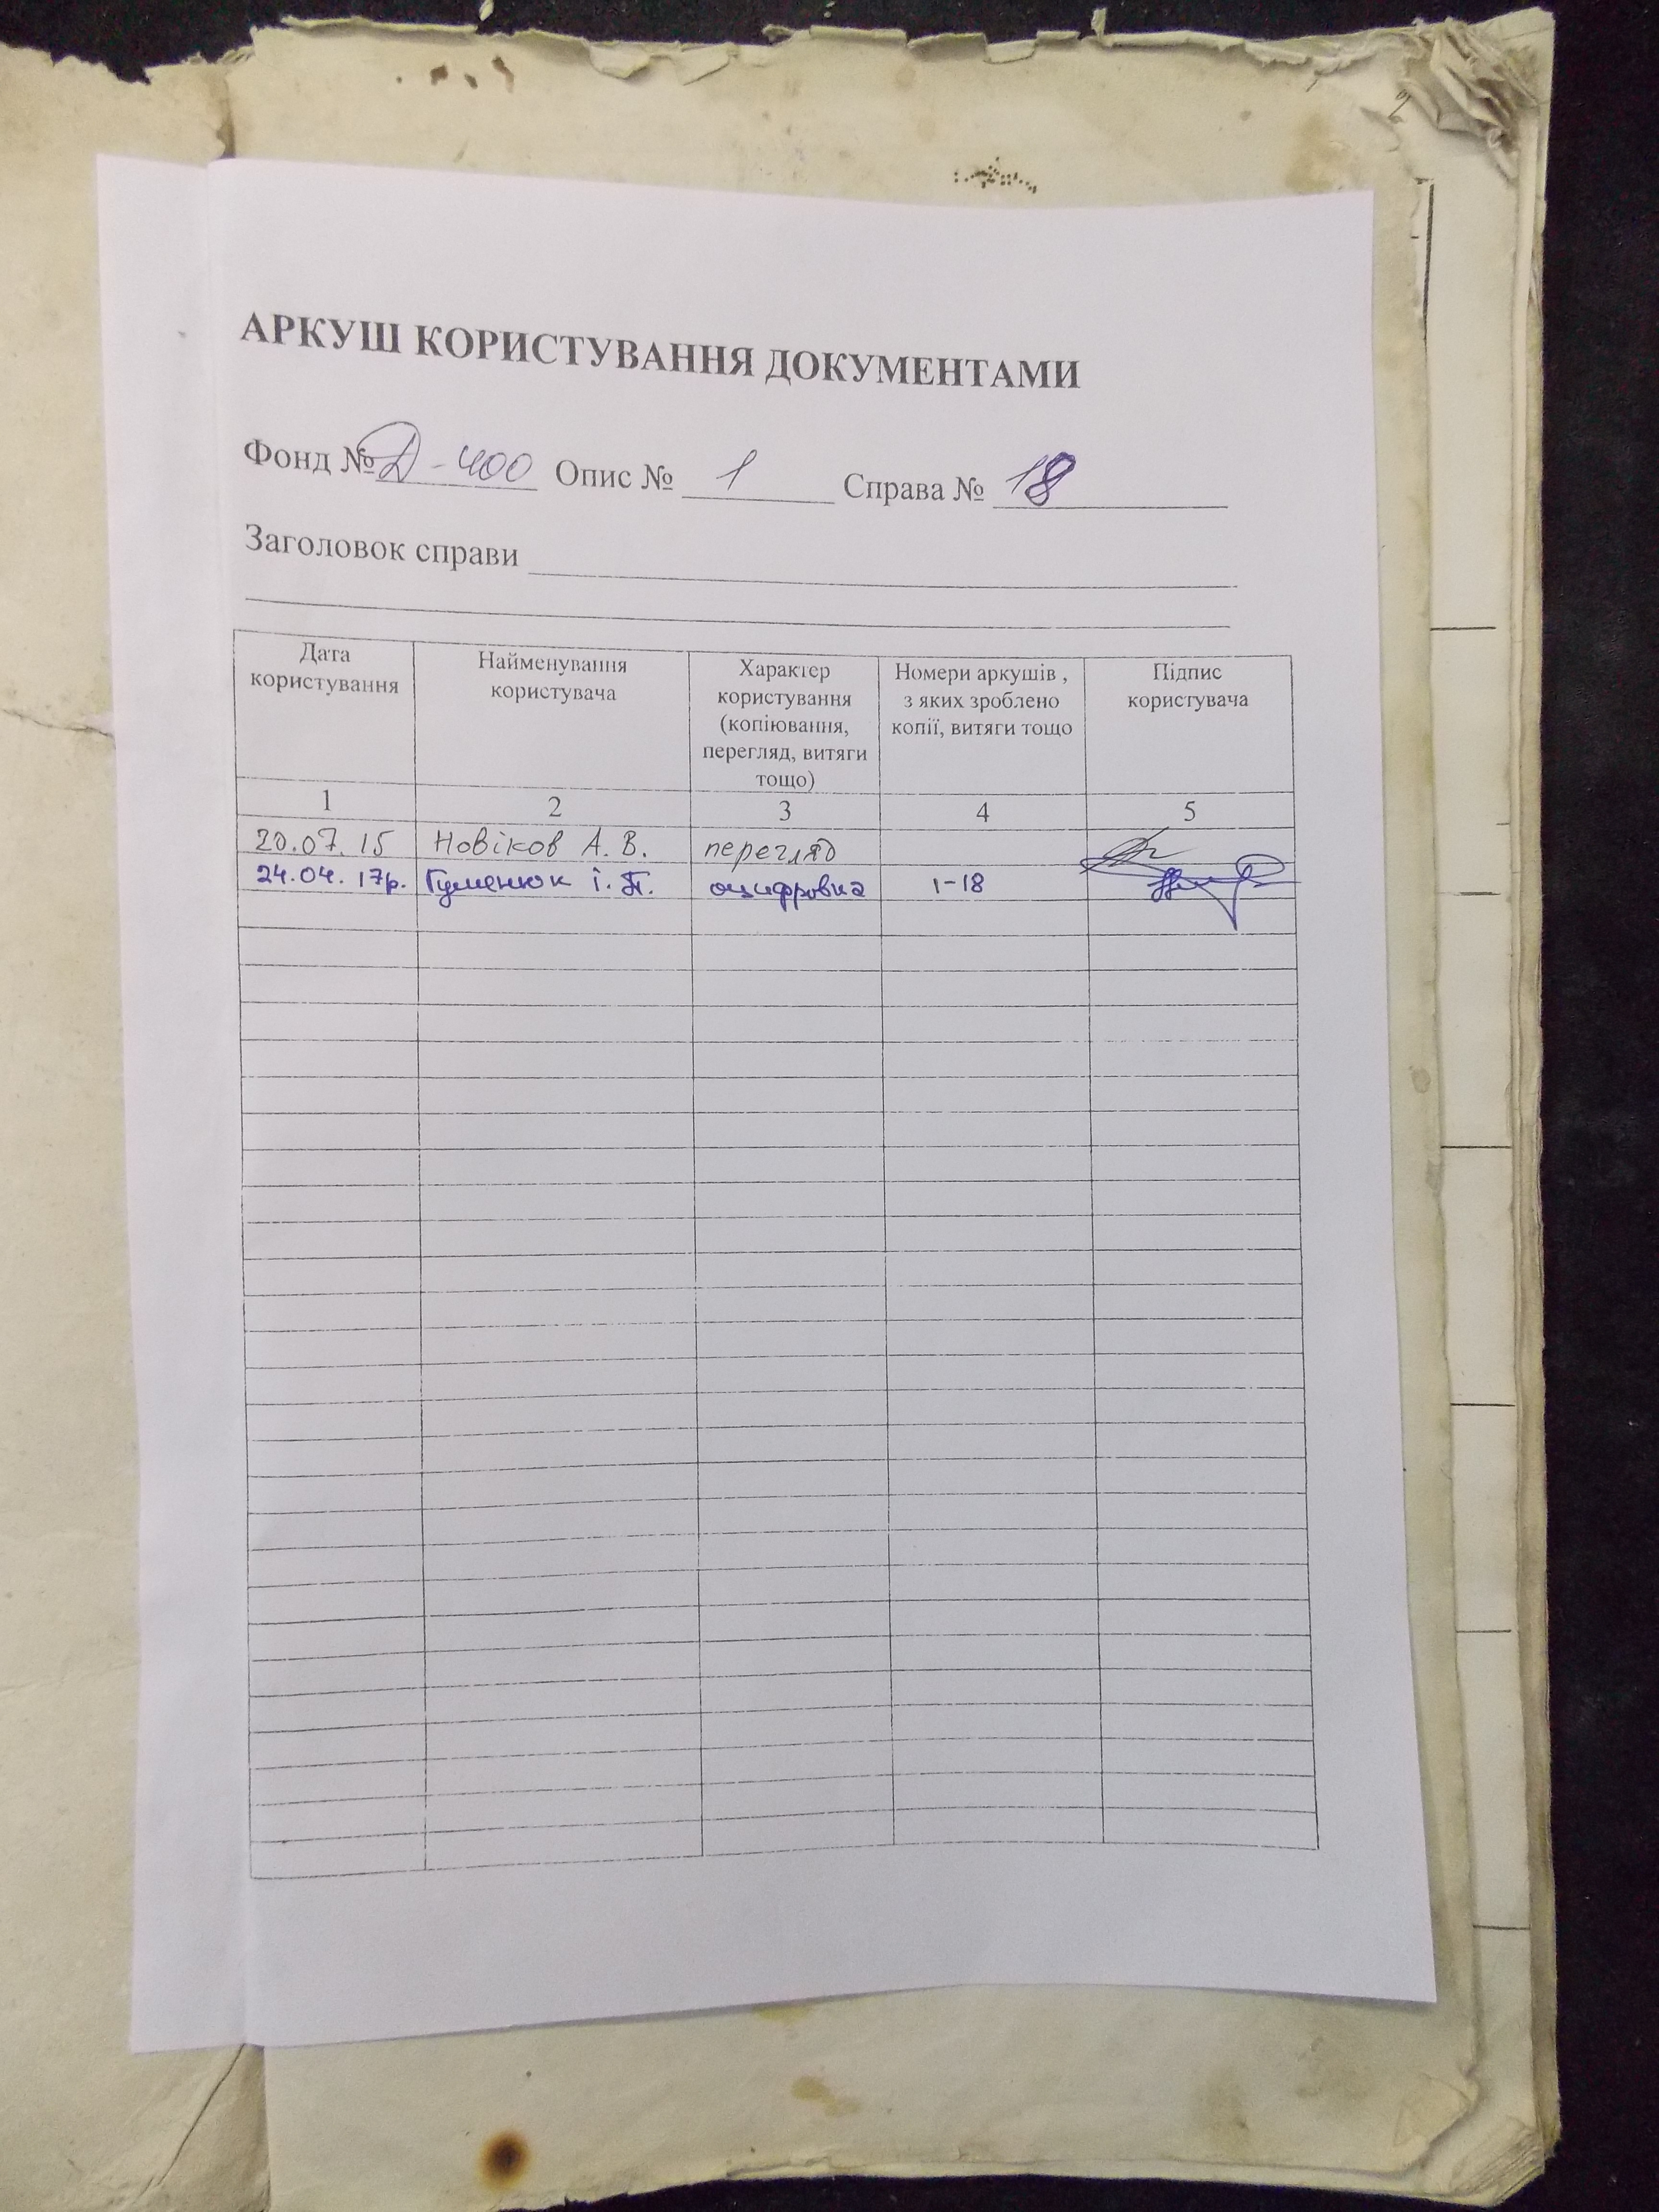 2
АРКУШ КОРИСТУВАННЯ ДОКУМЕНТАМИ
Фонд № Д-400 Опис № 1 Справа № 18
Заголовок справи
Дата користування
Найменування користувача
Характер користування (копіювання, перегляд, витяги тощо)
Номери аркушів , з яких зроблено копії, витяги тощо
Підпис користувача
1 2 3 4 5
20.07.15 Новіков А. В. перегляд
24.04.17р. Гуменюк І. П. оцифровка 1-18